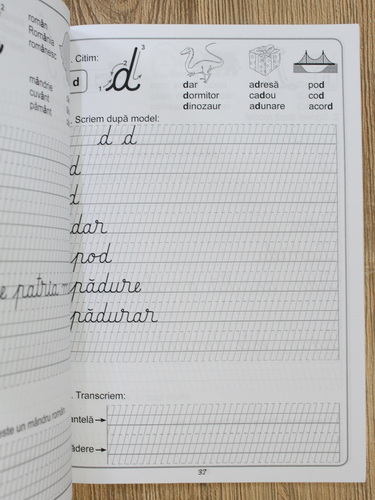 român
România
românesc
mândrie
cuvânt
pământ
e patria
este un mândru român
. Citim:
d
d
1 2 3
dar adresă pod
dormitor cadou cod
dinozaur adunare acord
. Scriem după model:
d d
d
d
dar
pod
pădure
pădurar
. Transcriem:
antelă
ădere
37